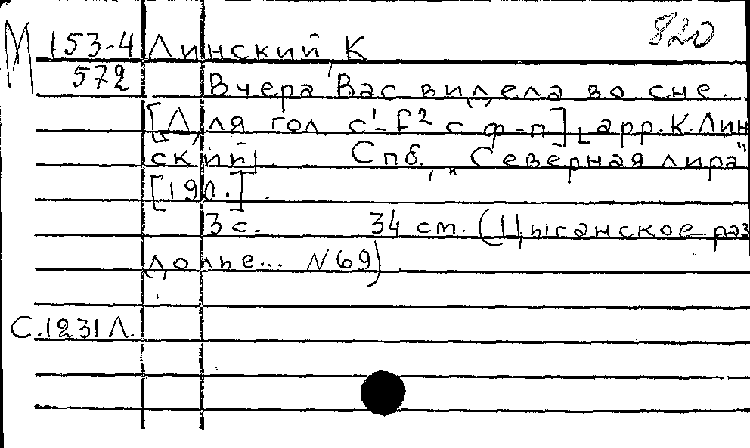 820
М 153-4 Линский, К
572 Вчера Вас видела во сне.
[Для гол. с¹-f² с ф-п], арр. К. Лин
ский. Спб., "Северная лира"
[19л.].
3 с. 34 см. (Цыганское раз
долье... N 69)
С.1231Л.